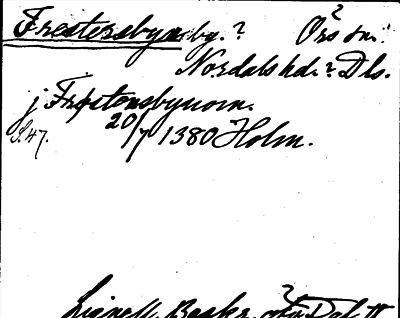 Frestersbyn bg. ? Örs sn. ?
Nordals hd. ? Dls.
j Frøstensbynom.
S. 47. 20/7 1380 Holm.
Lignell, Beskr. Dal II